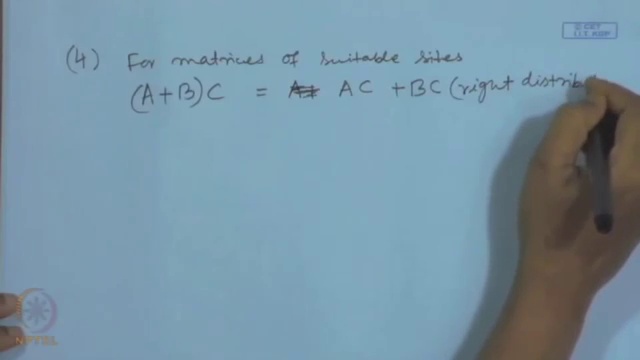 © CET
I.I.T. KGP
(4) For matrices of suitable sites
(A+B)C = AC + BC (right distrib
NPTEL